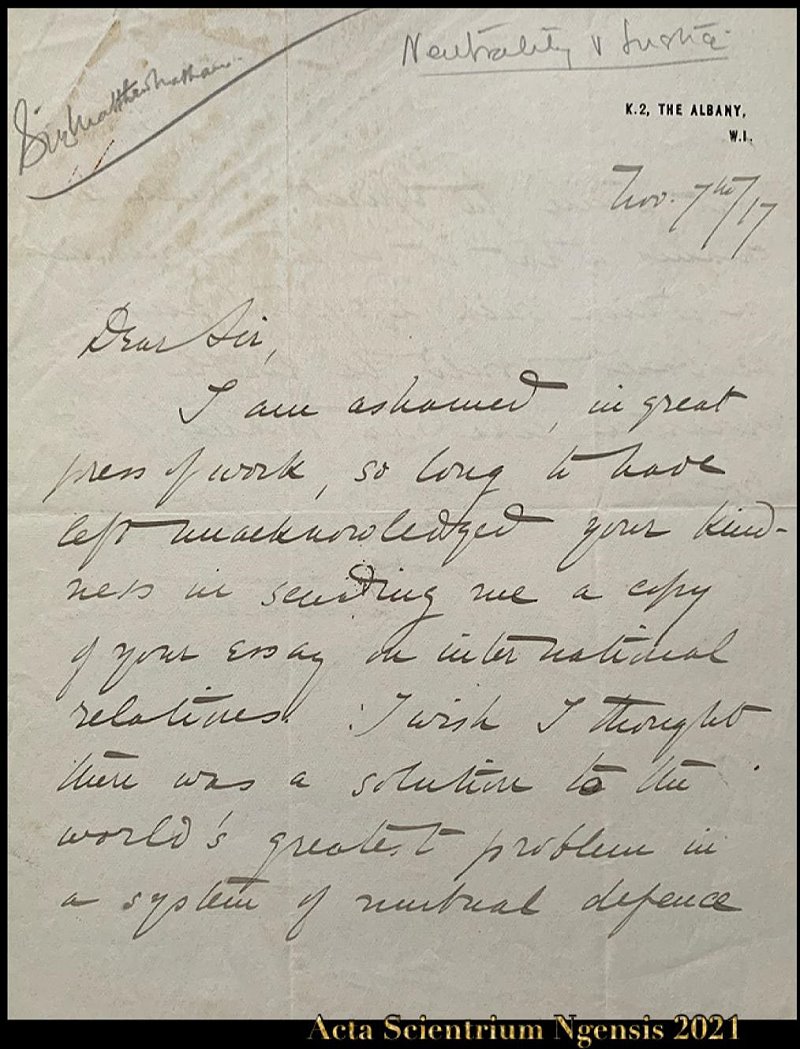 Neutrality v Justice
Sir Matthew Nathan.
K.2, THE ALBANY,
W.1.
Nov. 7th/17
Dear Sir,
I am ashamed, in great
press of work, so long to have
left unacknowledged your kind-
ness in sending me a copy
of your essay on international
relations. I wish I thought
there was a solution to the
world's greatest problem in
a system of mutual defence
Acta Scientrium Ngensis 2021